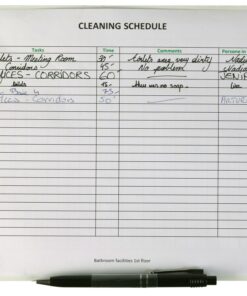 CLEANING SCHEDULE
Tasks Time Comments Persone in
Toilets - Meeting Room 30' Toilets area very dirty Nadia
Corridors 45' No problem Nadia
CORRIDORS 60' JENIF
15' there was no soap Lisa
25'
Corridors 50'
Bathroom facilities 1st floor